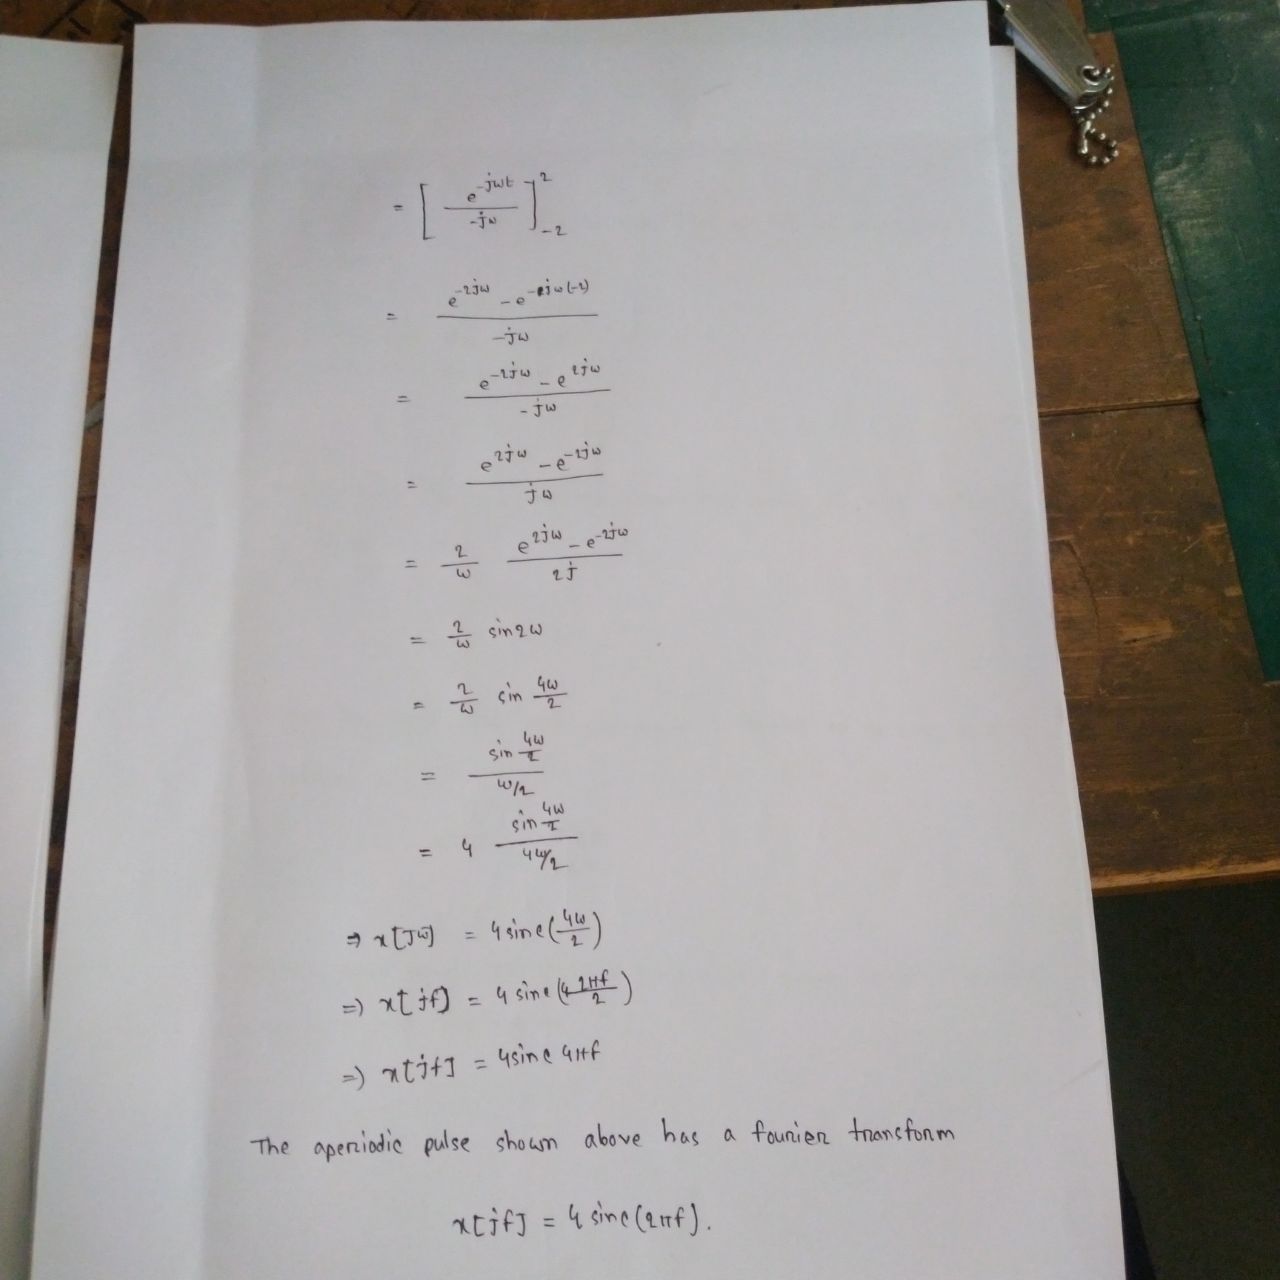 = [ e^{-jωt} / -jω ]_{-2}^{2}
= (e^{-2jω} - e^{-jω(-2)}) / -jω
= (e^{-2jω} - e^{2jω}) / -jω
= (e^{2jω} - e^{-2jω}) / jω
= 2/ω (e^{2jω} - e^{-2jω}) / 2j
= 2/ω sin2ω
= 2/ω sin 4ω/2
= (sin 4ω/2) / (ω/2)
= 4 (sin 4ω/2) / (4ω/2)
⇒ x[jω] = 4 sinc(4ω/2)
⇒ x[jf] = 4 sinc(4 2πf/2)
⇒ x[jf] = 4 sinc 4πf
The aperiodic pulse shown above has a fourier transform
x[jf] = 4 sinc(2πf).